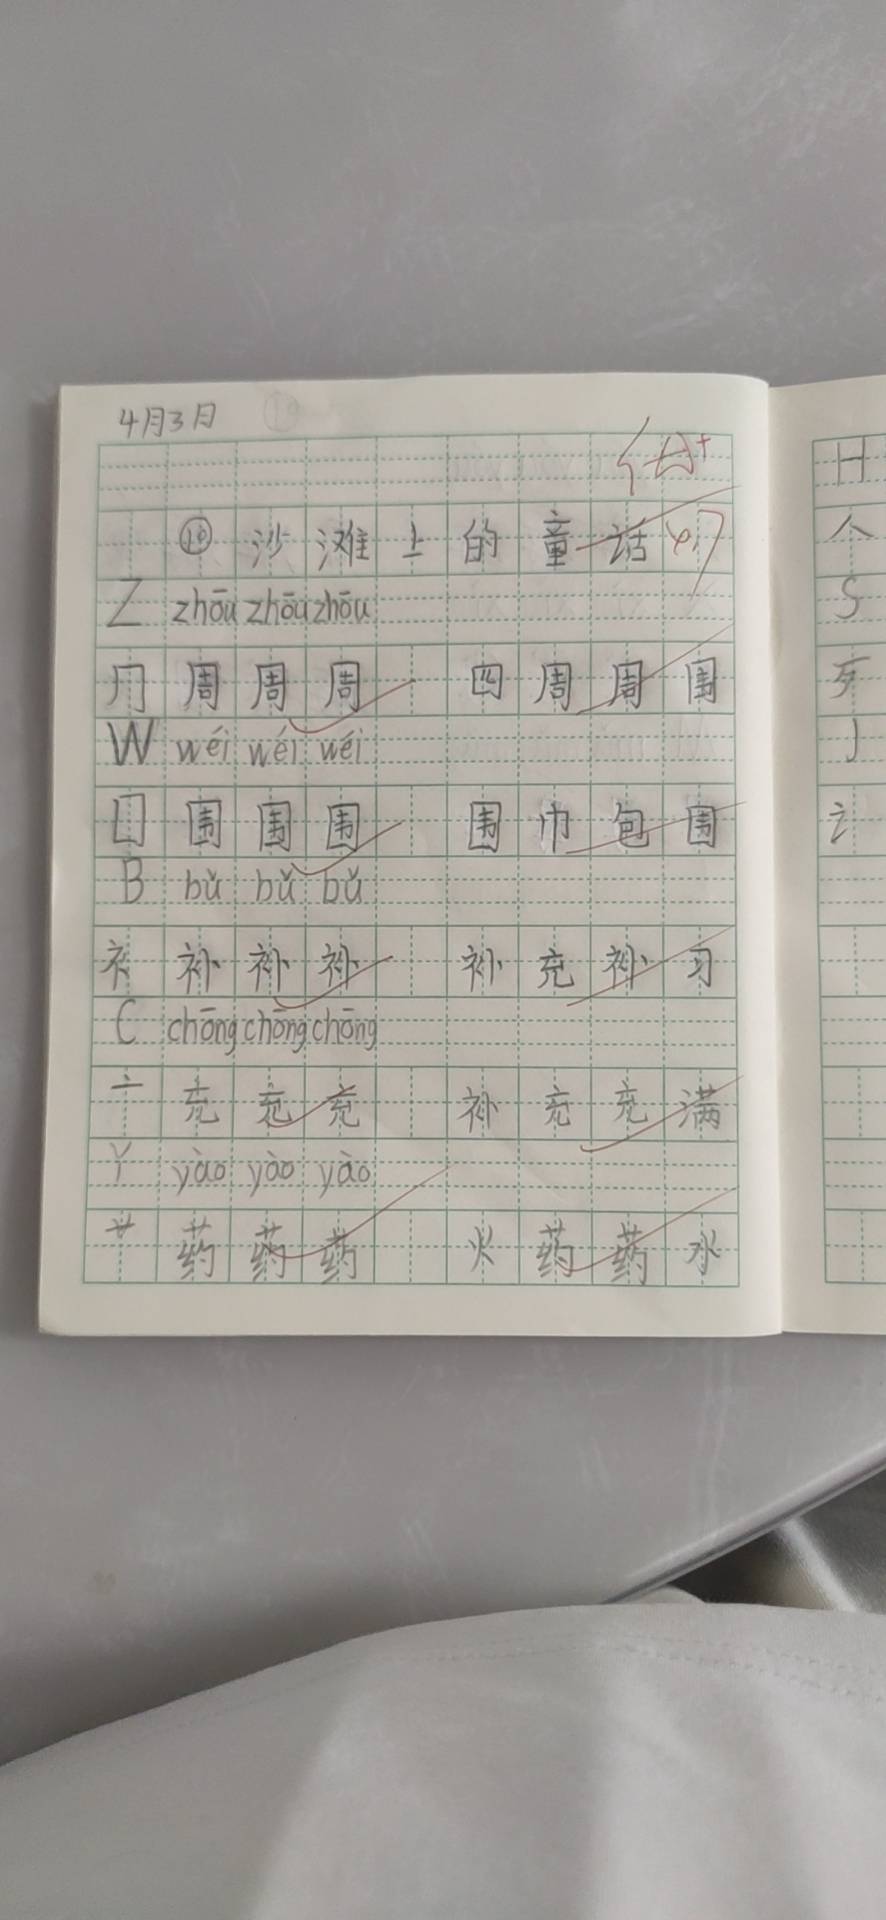 4月3日
优+
⑩ 沙滩上的童话
Z zhōu zhōu zhōu
冂 周 周 周 四周 周围
W wéi wéi wéi
囗 围 围 围 围巾 包围
B bǔ bǔ bǔ
衤 补 补 补 补充 补习
C chōng chōng chōng
亠 充 充 充 补充 充满
Y yào yào yào
艹 药 药 药 火药 药水
H
S
歹
J
讠